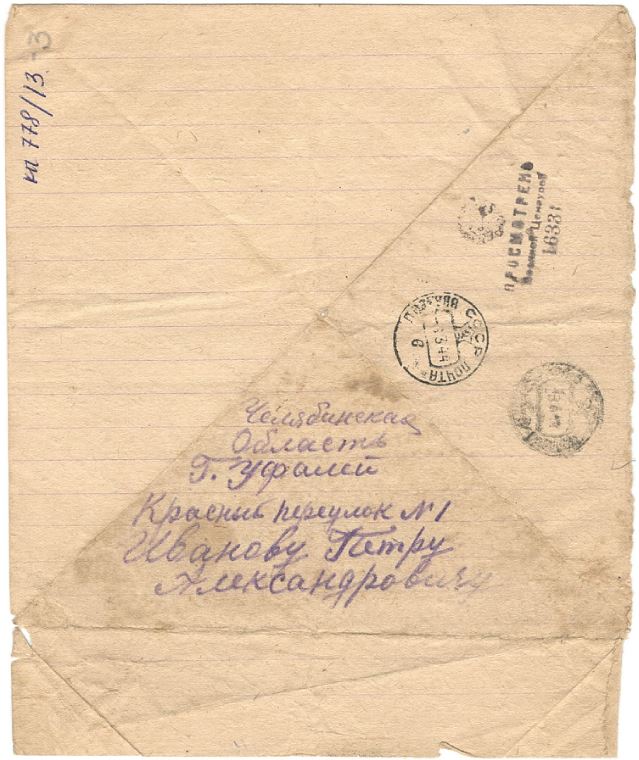 КП 778/13
-13
ПРОСМОТРЕНО
Военной Цензурой
16331
СССР
ПОЧТА
3 44
Челябинская
Область
Г. Уфалей
Красный переулок №1
Иванову Петру
Александровичу